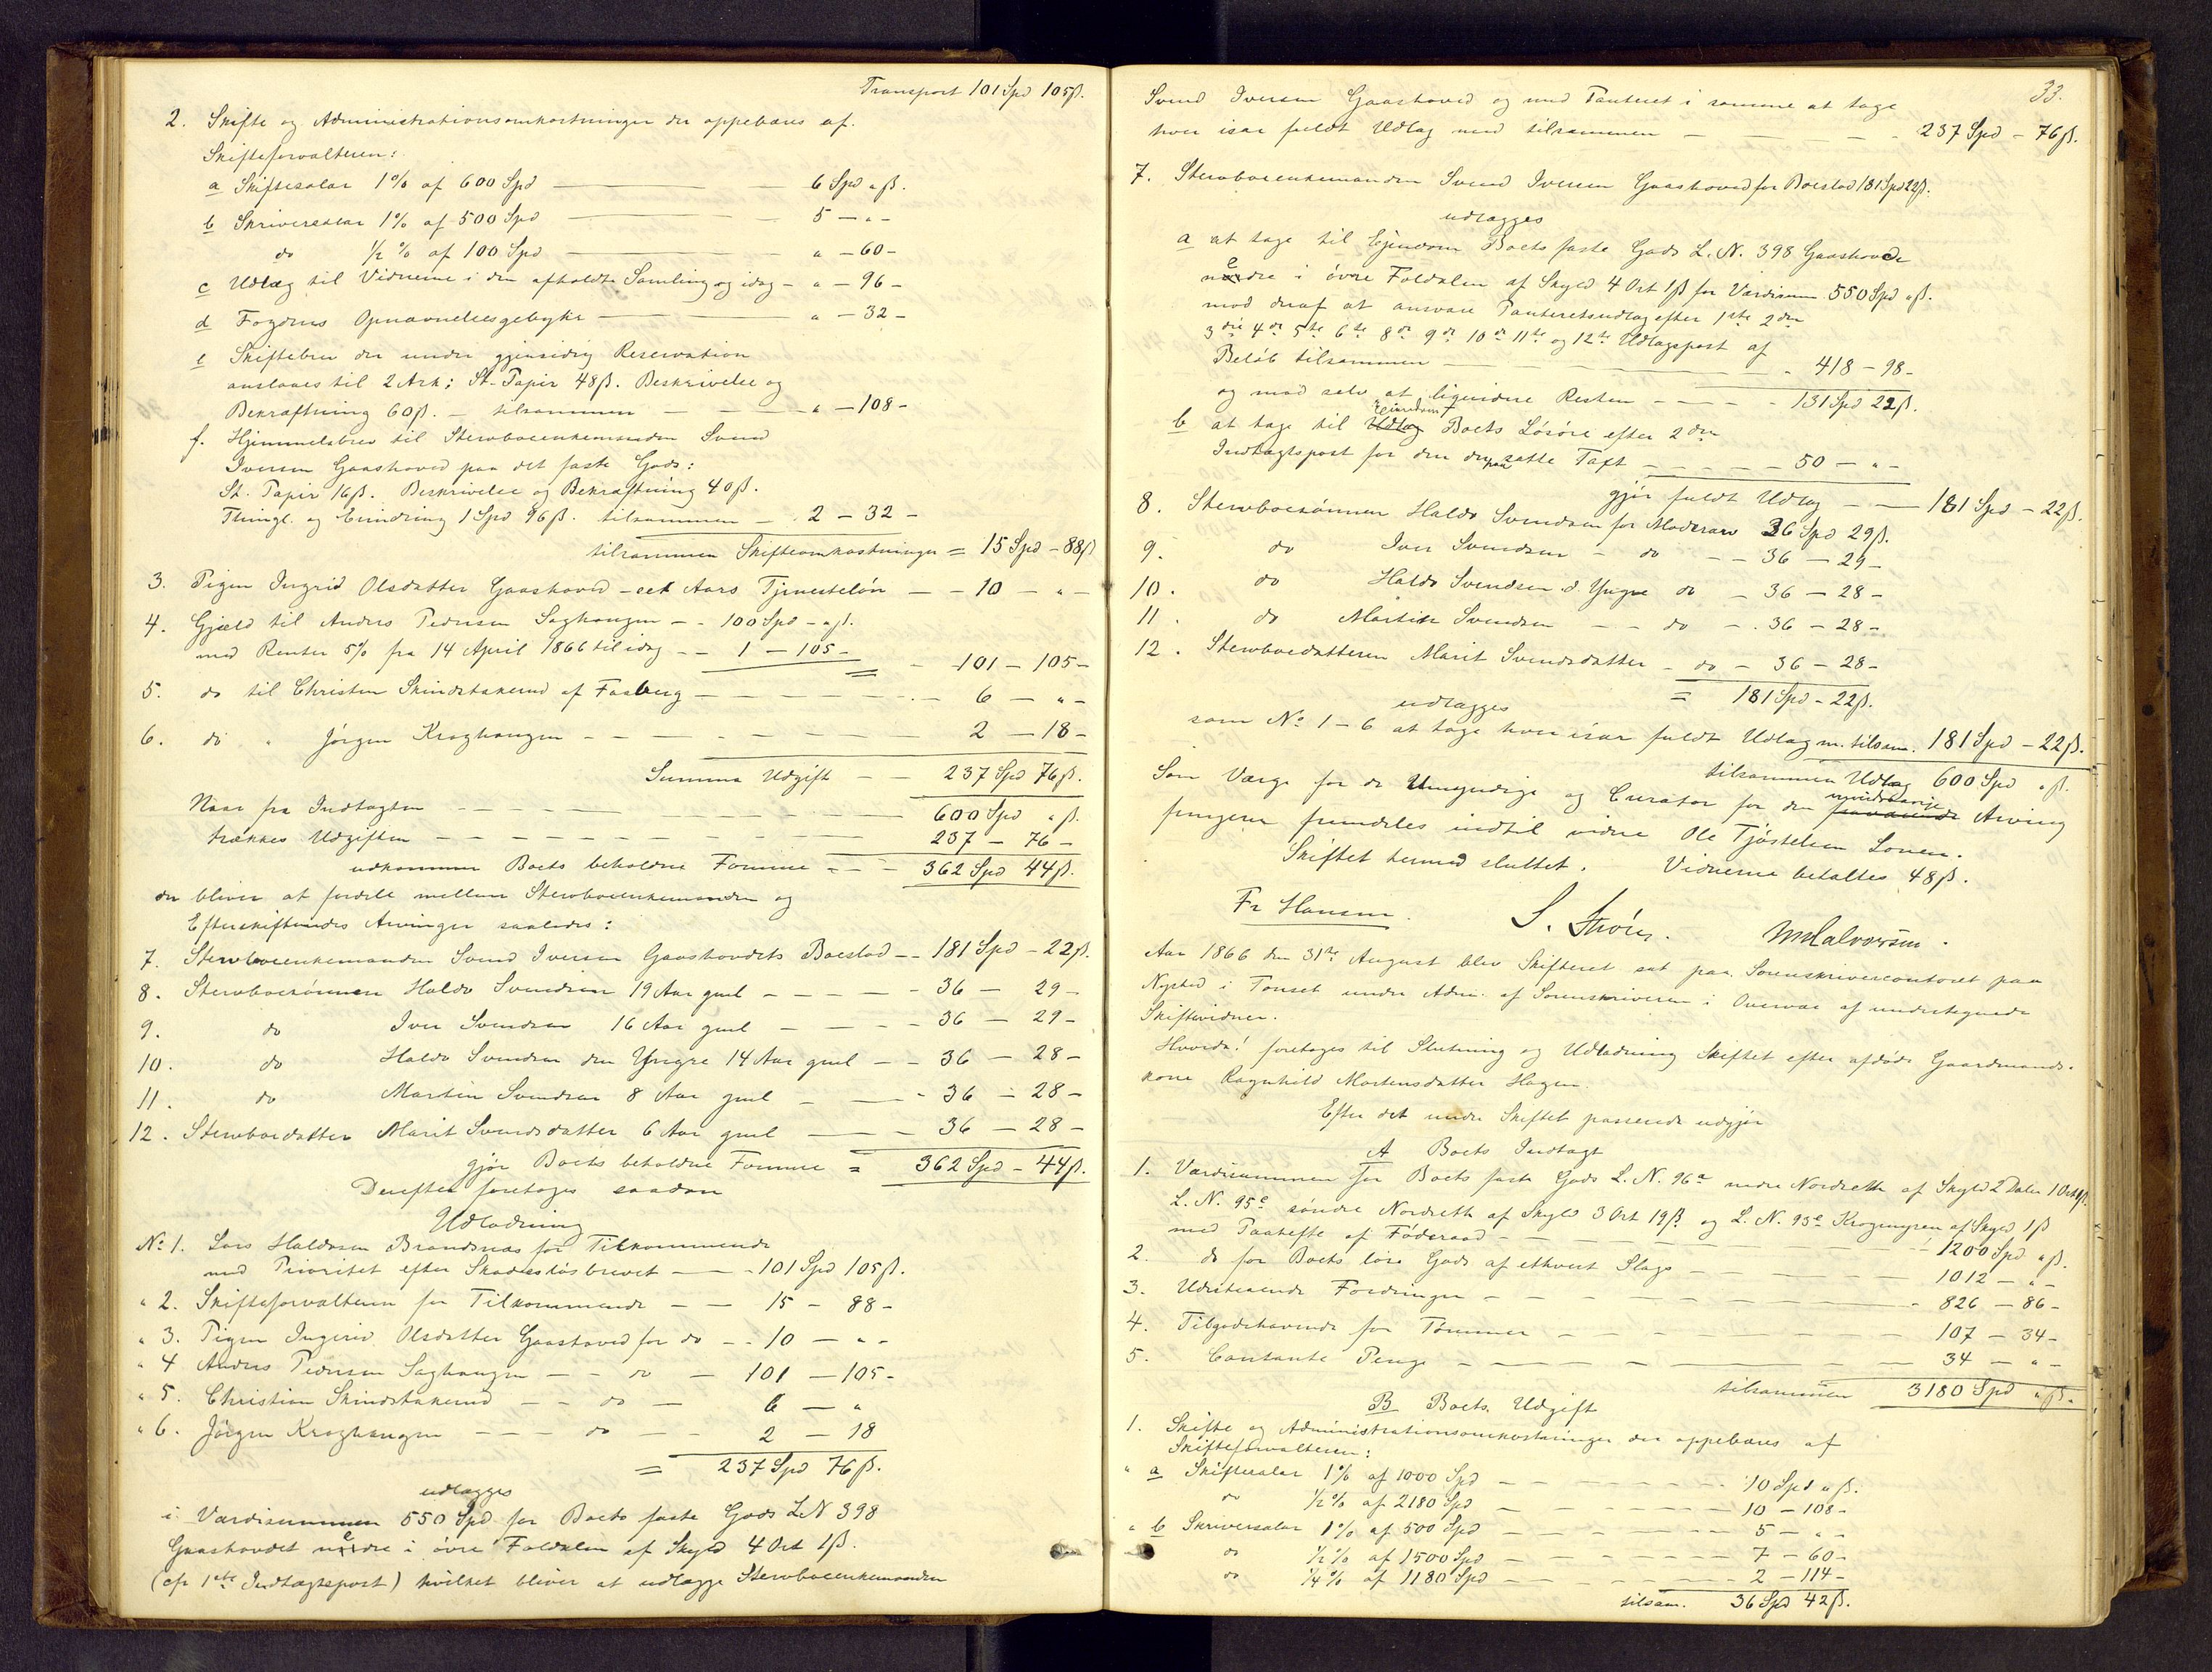 Transport 101 Spd 105ß.
2. Skifte og Administrationsomkostninger der oppebæres af
Skifteforvalteren:
a Skiftesalær 1% af 600 Spd — 6 Spd " ß.
b Skriversalær 1% af 500 Spd — 5 — " —
do ½% af 100 Spd — " — 60 —
c Udlæg til Vidnerne i den afholdte Samling og idag — " — 96 —
d Fogdens Opnævnelsesgebyhr — " — 32 —
e Skiftebrev der under gjensidig Reservation
anslaaes til 2 Ark: St. Papir 48ß. Beskrivelse og
Bekræftning 60ß. — tilsammen — " — 108 —
f. Hjemmelsbrev til Stervboenkemanden Svend
Iversen Gaashoved paa det faste Gods:
St. Papir 16ß. Beskrivelse og Bekræftning 40ß.
Thingl. og Erindring 1 Spd 96ß. tilsammen — 2 — 32 —
tilsammen Skifteomkostninger = 15 Spd — 88ß
3. Pigen Ingrid Olsdatter Gaashoved — eet Aars Tjenesteløn — 10 — " —
4. Gjæld til Anders Pedersen Saghaugen — 100 Spd — " ß.
med Renter 5% fra 14 April 1866 til idag — 1 — 105 — 101 — 105 —
5. do til Christen Skindstakerud af Faaberg — 6 — " —
6. do " Jörgen Kroghaugen — 2 — 18 —
Summa Udgift — 237 Spd 76ß.
Naar fra Indtægten — 600 Spd " ß.
trækkes Udgiften — 237 — 76 —
udkommer Boets beholdne Formue — 362 Spd 44ß.
der bliver at fordele mellem Stervboenkemanden og
Efterskiftendes Arvinger saaledes:
7. Stervboenkemanden Svend Iversen Gaashovdets Boeslod — 181 Spd — 22ß.
8. Stervboesønnen Haldo Svendsen 19 Aar gml — 36 — 29 —
9. do Iver Svendsen 16 Aar gml — 36 — 29 —
10. do Haldo Svendsen den Yngre 14 Aar gml — 36 — 28 —
11. do Martin Svendsen 8 Aar gml — 36 — 28 —
12. Stervboedatter Marit Svendsdatter 6 Aar gml — 36 — 28 —
gjør Boets beholdne Formue = 362 Spd — 44ß.
Derefter foretoges saadan
Udlodning
No 1. Lars Haldosen Brandsnæs for Tilkommende
med Prioritet efter Skadesløsbrevet — 101 Spd 105ß.
" 2. Skifteforvalteren for Tilkommende — 15 — 88 —
" 3. Pigen Ingerid Olsdatter Gaashoved for do — 10 — " —
" 4 Anders Pedersen Saghaugen — do — 101 — 105 —
" 5. Christian Skindstakerud — do — 6 — "
" 6. Jörgen Kroghaugen — do — 2 — 18
= 237 Spd 76ß.
udlægges
i Værdisummen 550 Spd for Boets faste Gods L N 398
Gaashovdet nedre i øvre Foldalen af Skyld 4 Ort 1ß.
(cfr 1ste Indtægtspost) hvilket bliver at udlægge Stervboenkemanden
33.
Svend Iversen Gaashoved og med Panteret i samme at tage
hver især fuldt Udlæg med tilsammen — 237 Spd — 76ß.
7. Stervboenkemanden Svend Iversen Gaashoved for Boeslod 181 Spd 22ß.
udlægges
a at tage til Ejendom Boets faste Gods L. N. 398 Gaashovde
nedre i øvre Foldalen af Skyld 4 Ort 1ß for Værdisum 550 Spd " ß.
mod deraf at ansvare Panteretsudlæg efter 1ste 2den
3die 4de 5te 6te 8de 9de 10de 11te og 12te Udlægspost af
Beløb tilsammen — " 418 — 98 —
og mod selv at liqvidere Resten — 131 Spd 22ß.
b at tage til Udlæg Eiendom Boets Løsøre efter 2den
Indtægtspost for den derpaa satte Taxt — 50 — " —
gjør fuldt Udlæg — 181 Spd — 22ß.
8. Stervboesønnen Haldo Svendsen for Modrearv 36 Spd 29ß.
9. do Iver Svendsen — do — 36 — 29 —
10. do Haldo Svendsen d Yngre do — 36 — 28 —
11. do Martin Svendsen — do — 36 — 28 —
12. Stervboedatteren Marit Svendsdatter — do — 36 — 28 —
= 181 Spd — 22ß.
udlægges
som No 1 — 6 at tage hver især fuldt Udlæg m. tilsam. 181 Spd — 22ß.
tilsammen Udlæg 600 Spd " ß.
Som Værge for de Umyndige og Curator for den mindreaarige Arving
fungerer fremdeles indtil videre Ole Tjøstelsen Loven.
Skiftet hermed sluttet. Vidnerne betaltes 48ß.
Fr Hansen. S. Thöres. MHalvorsen.
Aar 1866 den 31te August blev Skifteret sat paa Sorenskrivercontoret paa
Nysted i Tønset under Adm. af Sorenskriveren i Overvær af undertegnede
Skiftevidner.
Hvorda! foretoges til Slutning og Udlodning Skiftet efter afdøde Gaardmands-
kone Ragnhild Mortensdatter Hagen.
Efter det under Skiftet passerede udgjør
A Boets Indtægt
1. Værdisummen for Boets faste Gods L. N. 96a nedre Nordseth af Skyld 2 Daler 1 Ort 1ß.
L. N. 95c søndre Nordseth af Skyld 3 Ort 19ß og L. N. 95e Krogmyren af Skyld 1ß
med Paahefte af Føderaad — 1200 Spd " ß.
2. do for Boets løse Gods af ethvert Slags — 1012 — " —
3. Udestaaende Fordringer — 826 — 86 —
4. Tilgodehavende for Tømmer — 107 — 34 —
5. Contante Penge — 34 — " —
tilsammen 3180 Spd " ß.
B Boets Udgift
1. Skifte og Administrationsomkostninger der oppebæres af
Skifteforvalteren:
" a Skiftesalær 1% af 1000 Spd — 10 Spd " ß.
do ½% af 2180 Spd — 10 — 108 —
" b Skriversalær 1% af 500 Spd — 5 — " —
do ½% af 1500 Spd — 7 — 60 —
do ¼% af 1180 Spd — 2 — 114 —
tilsam. 36 Spd 42ß.